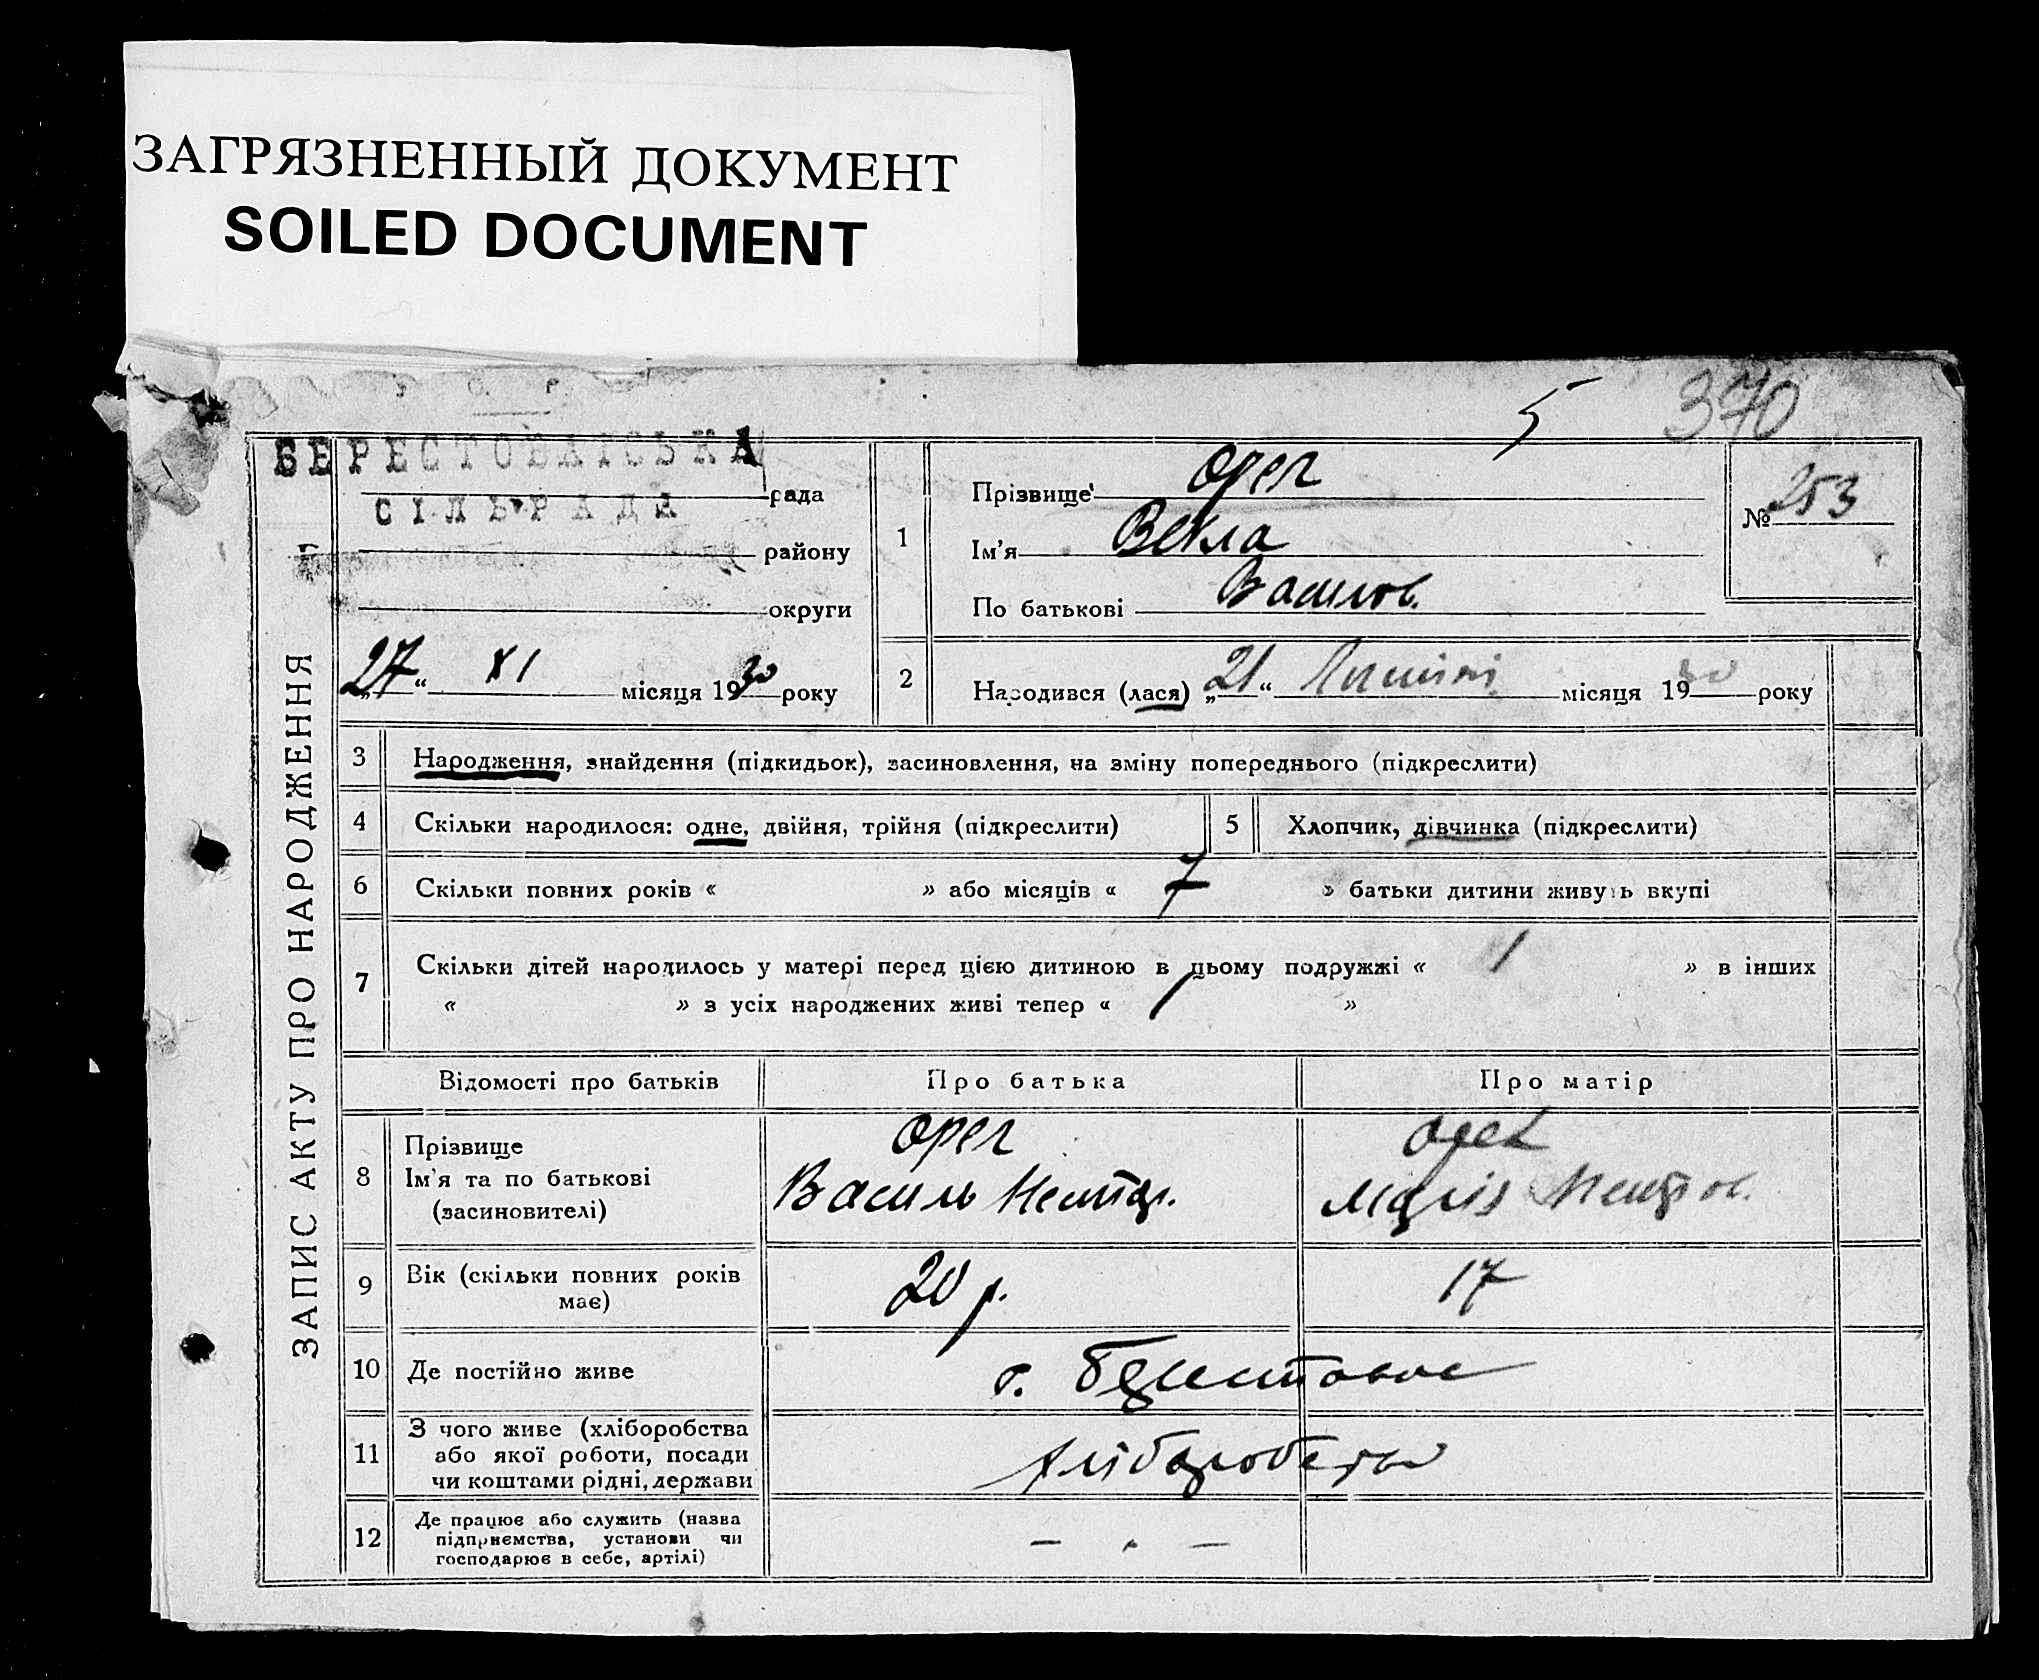 ЗАГРЯЗНЕННЫЙ ДОКУМЕНТ
SOILED DOCUMENT
У. С. Р. Р.
5 370
БЕРЕСТОВАТСЬКА
СІЛЬРАДА рада
району
округи
„27“ XI місяця 1930 року
ЗАПИС АКТУ ПРО НАРОДЖЕННЯ
1 Прізвище Орел
Ім'я Векла
По батькові Васильов.
№ 253
2 Народився (лася) „21“ місяця 1930 року
3 Народження, знайдення (підкидьок), засиновлення, на зміну попереднього (підкреслити)
4 Скільки народилося: одне, двійня, трійня (підкреслити) 5 Хлопчик, дівчинка (підкреслити)
6 Скільки повних років « » або місяців « 7 » батьки дитини живуть вкупі
7 Скільки дітей народилось у матері перед цією дитиною в цьому подружжі « 1 » в інших
« » з усіх народжених живі тепер « 1 »
Відомості про батьків Про батька Про матір
8 Прізвище Орел Орел
Ім'я та по батькові Василь Марія
(засиновителі)
9 Вік (скільки повних років має) 20 р. 17
10 Де постійно живе с.
11 З чого живе (хліборобства
або якої роботи, посади
чи коштами рідні, держави
12 Де працює або служить (назва
підприємства, установи чи
господарює в себе, артілі) – . –